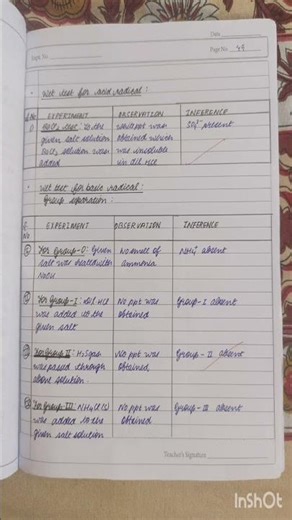 Date
Expt. No.
Page No. 49
Wet test for acid radical :
S.No EXPERIMENT OBSERVATION INFERENCE
1) BaCl2 test : To the white ppt was SO4²⁻ present
given salt solution obtained which
BaCl2 solution was was insoluble
added in dil. HCl
Wet test for basic radical :
Group separation :
S. No EXPERIMENT OBSERVATION INFERENCE
For Group-0 : Given No smell of NH4⁺ absent
salt was heated with ammonia
NaOH
For Group-I : dil HCl No ppt was Group-I absent
was added to the obtained
given salt
For Group II : H2S gas No ppt was Group-II absent
was passed through obtained
above solution.
For Group III : NH4Cl(s) No ppt was Group-III absent
was added to the obtained
given salt solution
Teacher's Signature
InShOt